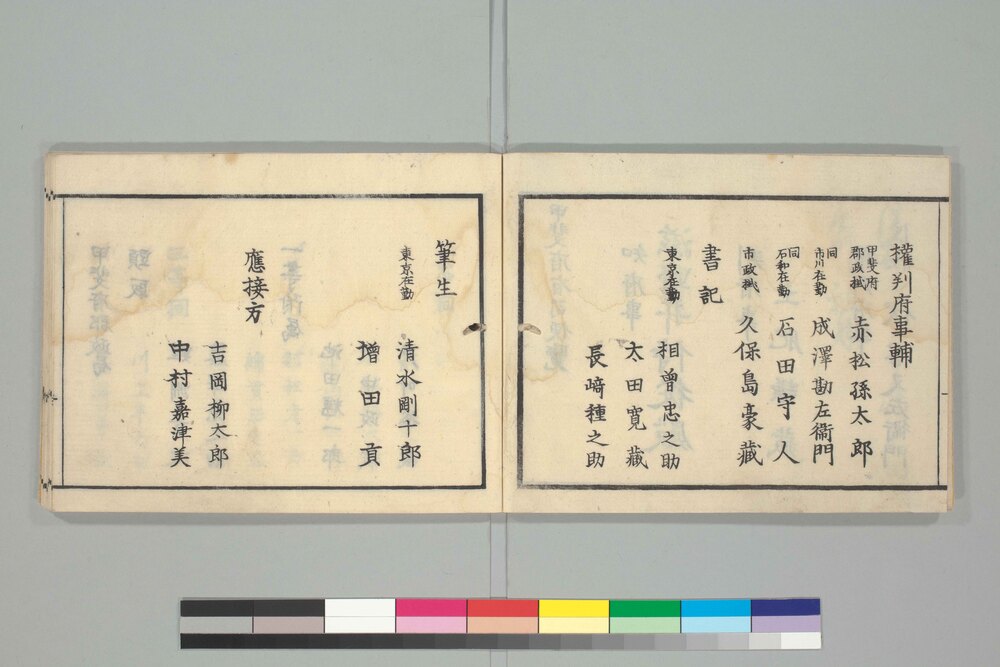 權判府事輔
甲斐府
郡政掛
赤松孫太郎
同
市川在勤
成澤勘左衞門
同
石和在勤
石田守人
市政掛
久保島豪藏
書記
東京在勤
相曾忠之助
太田寛藏
長﨑種之助
筆生
東京在勤
清水剛十郎
增田貢
應接方
吉岡柳太郎
中村嘉津美